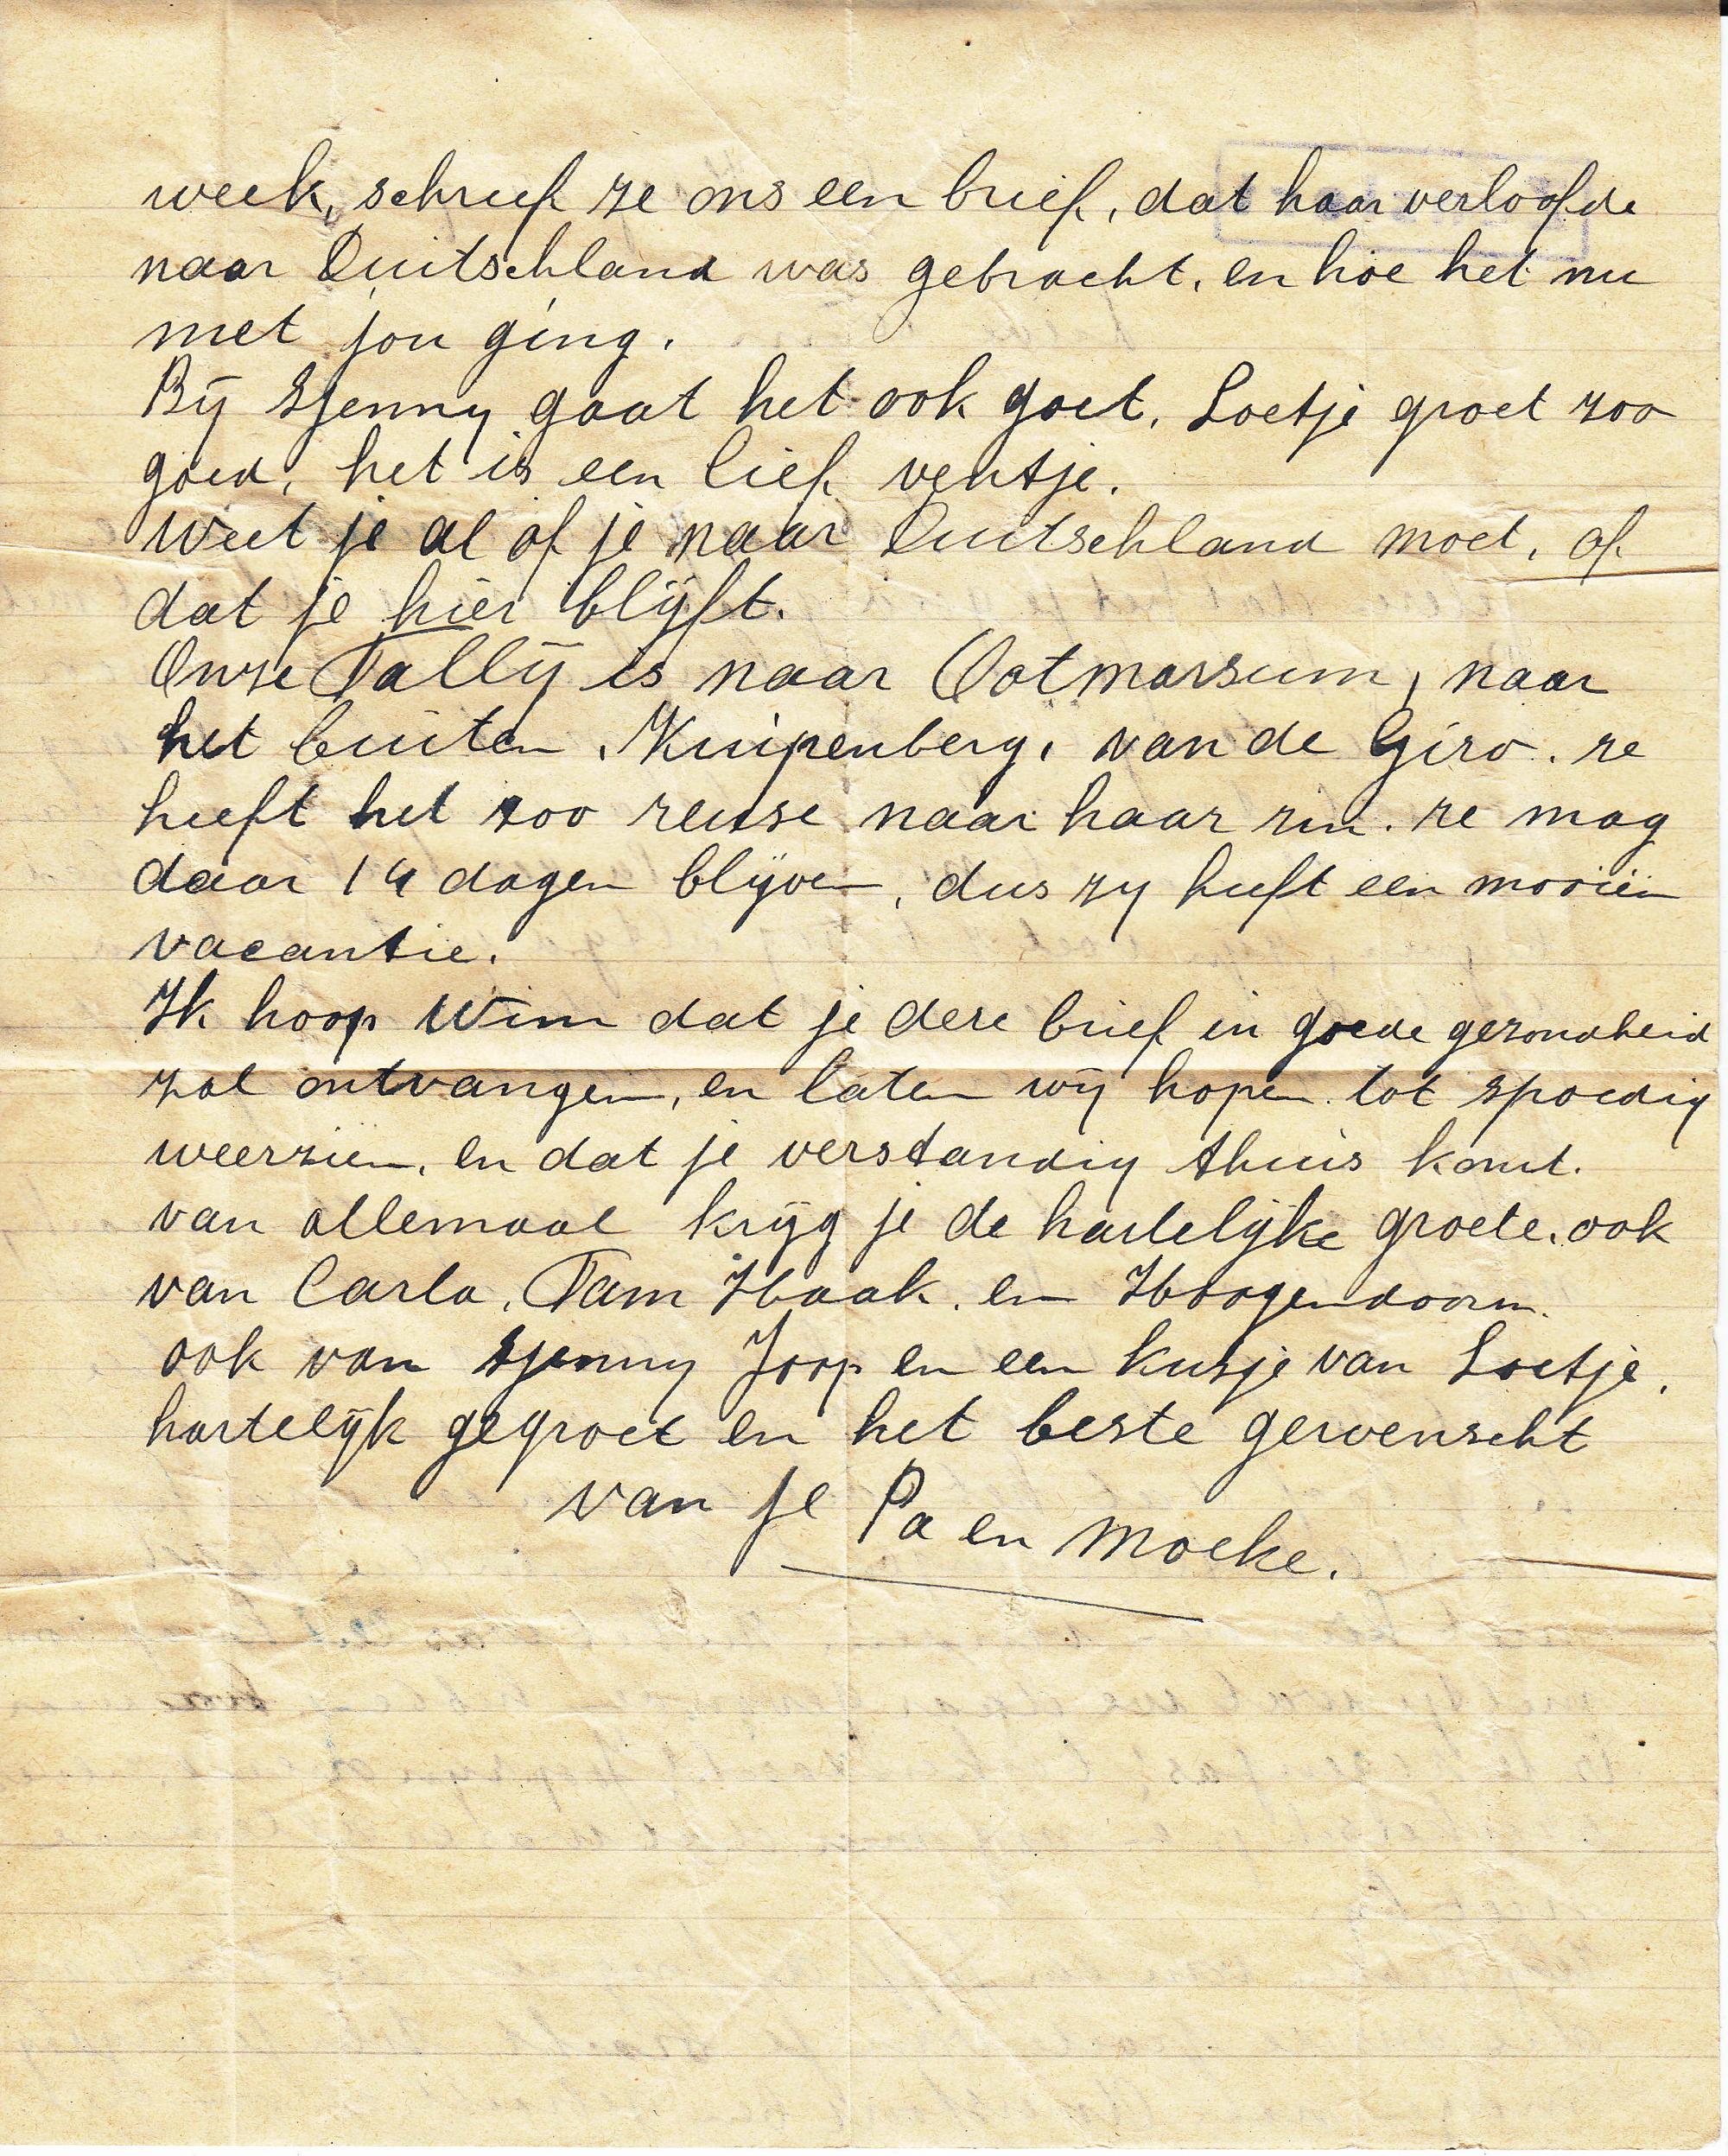 week, schreef ze ons een brief, dat haar verloofde
naar Duitschland was gebracht, en hoe het nu
met jou ging.
Bij Sjenny gaat het ook goet. Loetje groet zoo
goed, het is een lief ventje.
Weet je al of je naar Duitschland moet, of
dat je hier blijft.
Onze Tallij is naar Ootmarsum, naar
het buiten Kuipenberg, van de Giro. ze
heeft het zoo reuse naar haar zin. ze mag
daar 14 dagen blijven, dus zy heeft een mooien
vacantie.
Ik hoop Wim dat je deze brief in goede gezondheid
zal ontvangen, en laten wij hopen tot spoedig
weerzien, en dat je verstandig thuis komt.
van allemaal krijg je de hartelijke groete. ook
van Carla, Tam Haak, en Hoogendoorn.
ook van Sjenny Joop en een kusje van Loetje.
hartelijk gegroet en het beste gewenscht
van je Pa en Moeke.